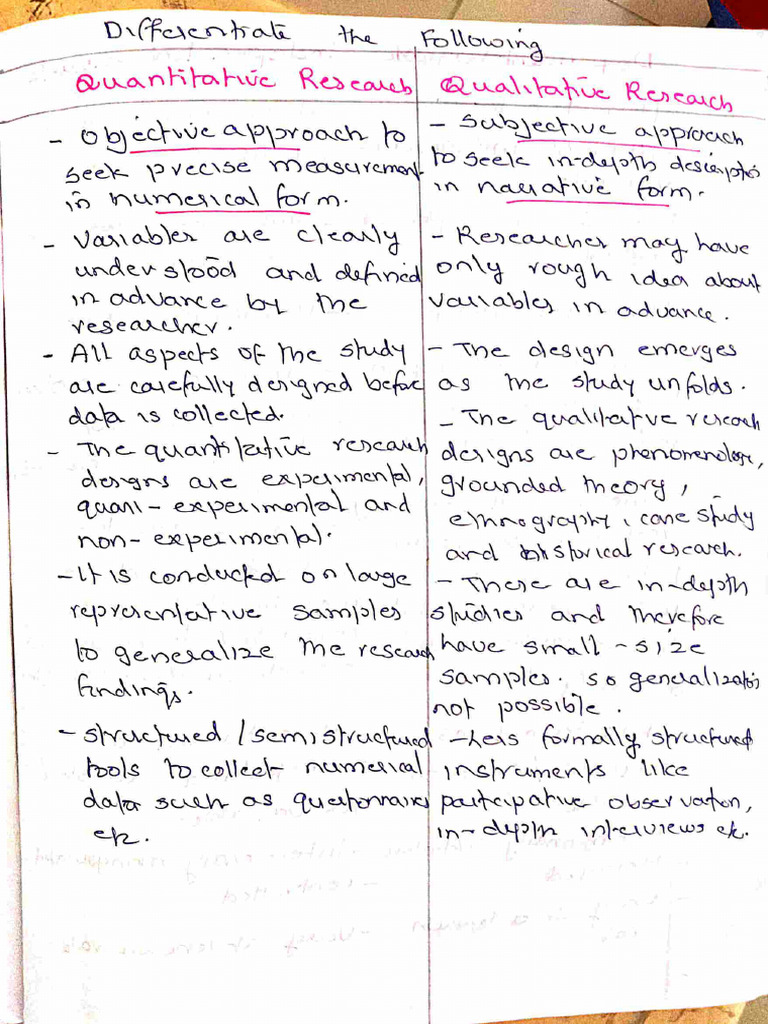 Differentiate the Following
Quantitative Research
- Objective approach to
seek precise measurement
in numerical form.
- Variables are clearly
understood and defined
in advance by the
researcher.
- All aspects of the study
are carefully designed before
data is collected.
- The quantitative research
designs are experimental,
quasi-experimental and
non-experimental.
- It is conducted on large
representative samples
to generalize the research
findings.
- structured / semistructured
tools to collect numerical
data such as questionnaires
etc.
Qualitative Research
- Subjective approach
to seek in-depth description
in narrative form.
- Researcher may have
only rough idea about
variables in advance.
- The design emerges
as the study unfolds.
- The qualitative research
designs are phenomenology,
grounded theory,
ethnography, case study
and historical research.
- These are in-depth
studies and therefore
have small-size
samples. so generalization
not possible.
- Less formally structured
instruments like
participative observation,
in-depth interviews etc.